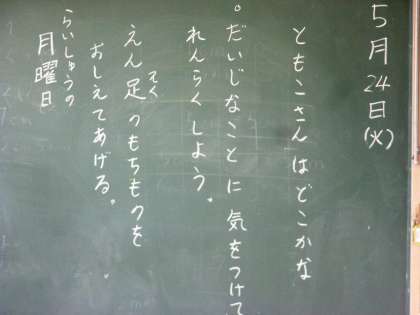 5月24日(火)
ともこさんはどこかな
。だいじなことに気をつけて
れんらくしよう。
えん足のもちものを
そく
おしえてあげる。
らいしゅうの
月曜日